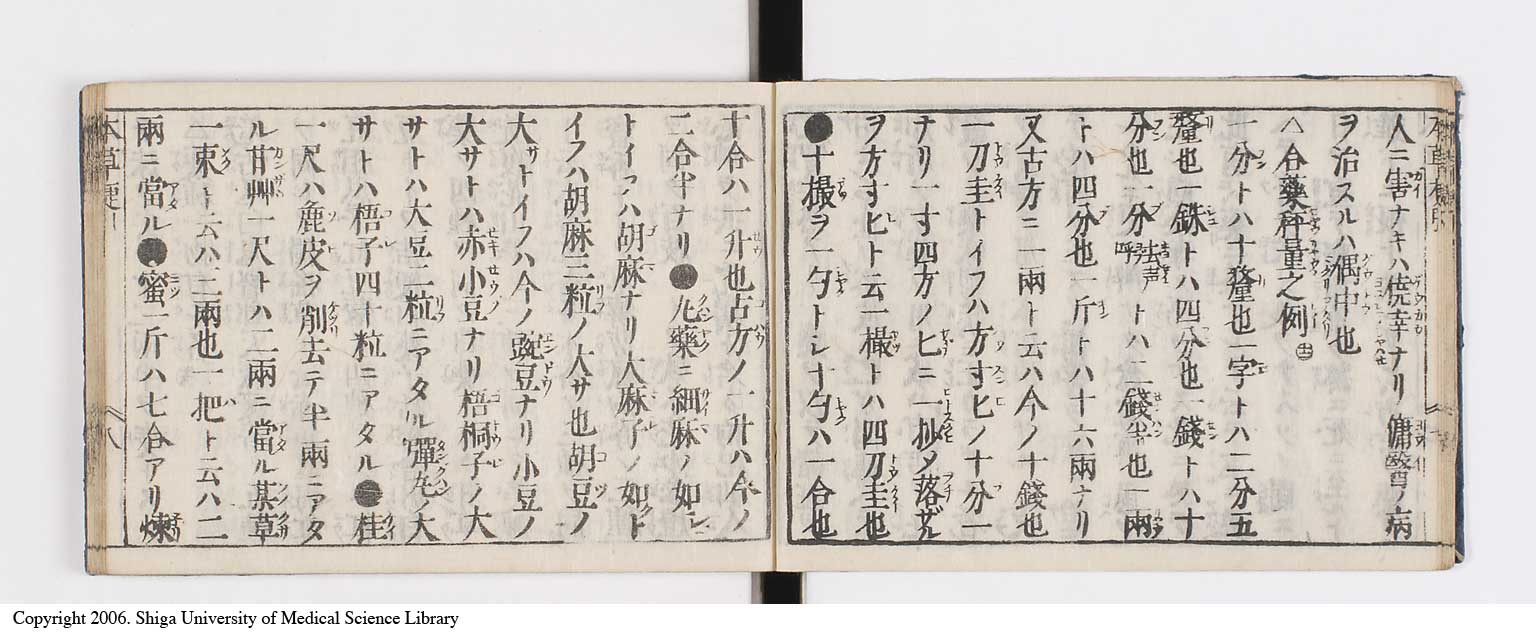 人ニ害ナキハ僥幸ナリ庸醫ノ病
ヲ治スルハ偶中也
△合藥秤量之例
一分トハ十釐也一字トハ二分五
釐也一銖トハ四分也一錢トハ十
分也一分去声呼トハ二錢半也一兩
トハ四分也一斤トハ十六兩ナリ
又古方ニ一兩ト云ハ今ノ十錢也
一刀圭トイフハ方寸匕ノ十分一
ナリ一寸四方ノ匕ニ一抄メ落ザル
ヲ方寸匕ト云一撮トハ四刀圭也
●十撮ヲ一勺トシ十勺ハ一合也
十合ハ一升也古方ノ一升ハ今ノ
二合半ナリ●丸藥ニ細麻ノ如シ
トイフハ胡麻ナリ大麻子ノ如クト
イフハ胡麻三粒ノ大サ也胡豆ノ
大サトイフハ今ノ豌豆ナリ小豆ノ
大サトハ赤小豆ナリ梧桐子ノ大
サトハ大豆二粒ニアタル彈丸ノ大
サトハ梧子四十粒ニアタル●桂
一尺ハ麁皮ヲ削去テ半兩ニアタ
ル甘艸一尺トハ二兩ニ當ル某草
一束ト云ハ三兩也一把ト云ハ二
兩ニ當ル●蜜一斤ハ七合アリ煉
八
Copyright 2006. Shiga University of Medical Science Library